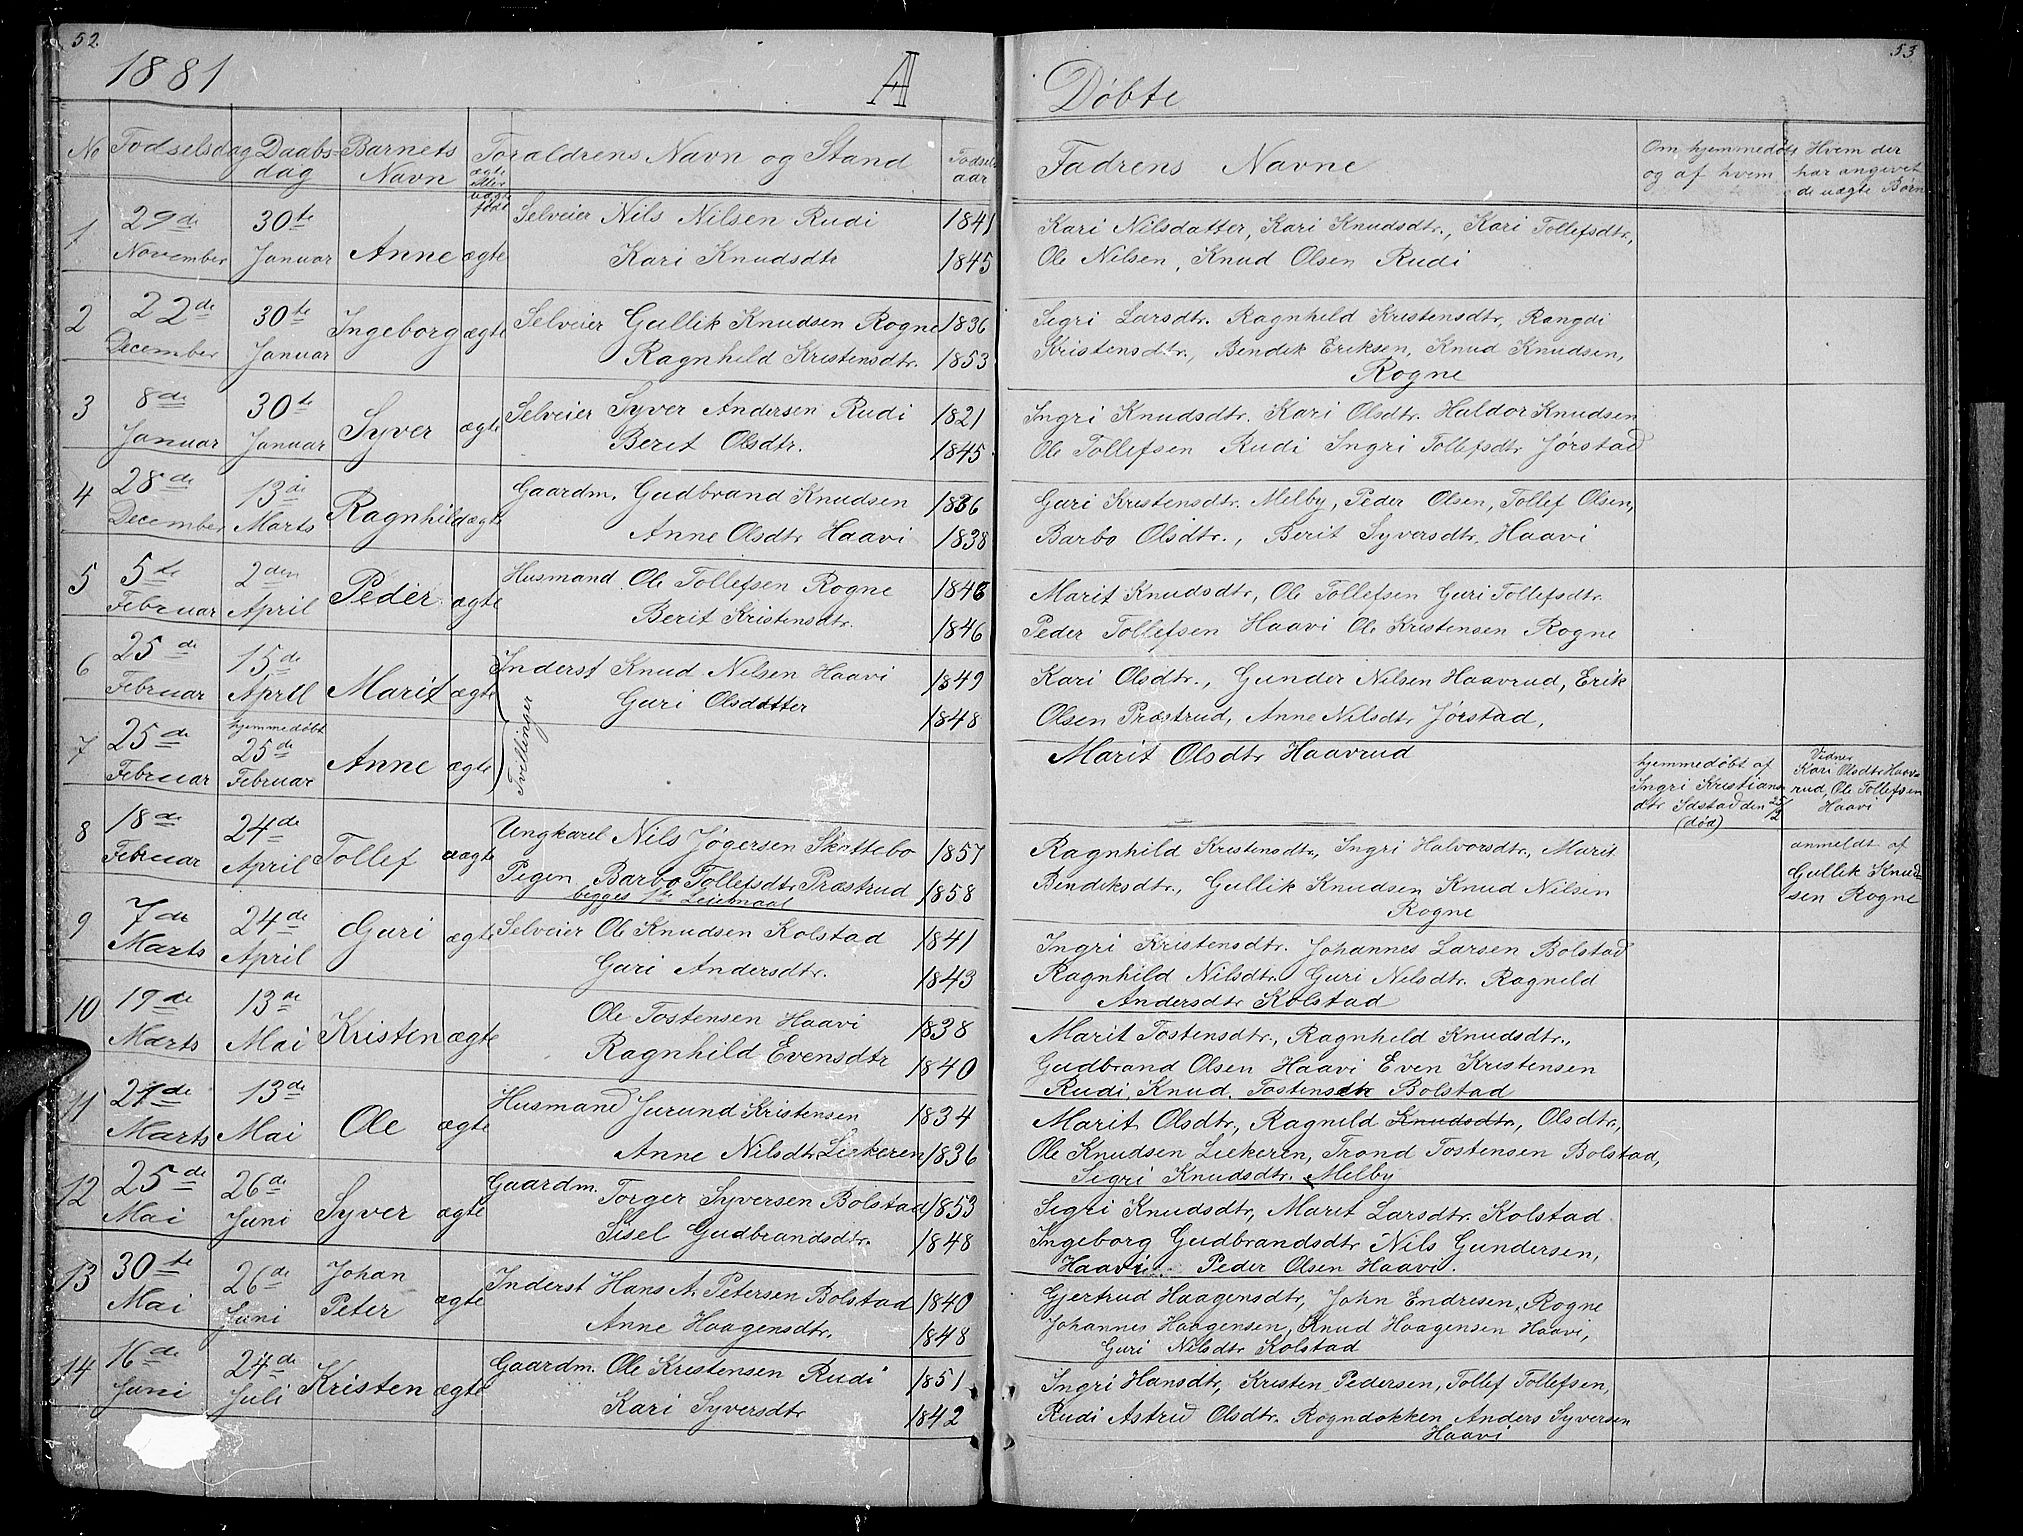 52.
1881
A
Døbte
53
No
Fødselsdag
Daabs-
dag
Barnets
Navn
ægte
eller
uægte
født
Foraldrens Navn og Stand
Fødsels
aar
Fadrens Navne
Om hjemmedøbt
og af hvem
Hvem der
har angivet
de uægte Børn
1
29de
November
30te
Januar
Anne
ægte
Selveier Nils Nilsen Rudi
1841
Kari Knudsdtr
1845
Kari Nilsdatter, Kari Knudsdtr., Kari Tollefsdtr,
Ole Nilsen, Knud Olsen Rudi
2
22de
December
30te
Januar
Ingeborg
ægte
Selveier Gullik Knudsen Rogne
1836
Ragnhild Kristensdtr.
1853
Sigri Larsdtr. Ragnhild Kristensdtr, Rangdi
Kristensdtr., Bendik Eriksen, Knud Knudsen,
Rogne
3
8de
Januar
30te
Januar
Syver
ægte
Selveier Syver Andersen Rudi
1821
Berit Olsdtr.
1845
Ingri Knudsdtr. Kari Olsdtr. Haldor Knudsen
Ole Tollefsen Rudi Ingri Tollefsdtr Jørstad
4
28de
December
13di
Marts
Ragnhild
ægte
Gaardm. Gudbrand Knudsen
1836
Anne Olsdtr Haavi
1838
Guri Kristensdtr. Melby, Peder Olsen, Tollef Olsen,
Barbo Olsdtr., Berit Syversdtr. Haavi
5
5te
Februar
2den
April
Peder
ægte
Husmand Ole Tollefsen Rogne
1846
Berit Kristensdtr.
1846
Marit Knudsdtr, Ole Tollefsen Guri Tollefsdtr.
Peder Tollefsen Haavi Ole Kristensen Rogne
6
25de
Februar
15de
April
Marit
ægte
Inderst Knud Nilsen Haavi
1849
Guri Olsdatter
1848
Tvillinger
Kari Olsdtr., Gunder Nilsen Haavrud, Erik
Olsen Præstrud, Anne Nilsdtr Jørstad,
7
25de
Februar
hjemmedøbt
25de
Februar
Anne
ægte
Marit Olsdtr Haavrud
hjemmedøbt af
Ingri Kristians
dtr Idstad den 25/2
(død)
Vidner
Kari Olsdtr Haav-
rud, Ole Tollefsen
Haavi
8
18de
Februar
24de
April
Tollef
uægte
Ungkarel Nils Jøgersen Skattebo
1857
Pigen Barbo Tollefsdtr Præstrud
1858
begges 1ste Leiermaal
Ragnhild Kristensdtr, Ingri Halvorsdtr, Marit
Bendiksdtr., Gullik Knudsen Knud Nilsen
Rogne
anmeldt af
Gullik Knud-
sen Rogne
9
7de
Marts
24de
April
Guri
ægte
Selveier Ole Knudsen Kolstad
1841
Guri Andersdtr.
1843
Ingri Kristensdtr. Johannes Larsen Bolstad
Ragnhild Nilsdtr. Guri Nilsdtr. Ragnild
Andersdtr Kolstad
10
19de
Marts
13de
Mai
Kristen
ægte
Ole Tostensen Haavi
1838
Ragnhild Evensdtr
1840
Marit Tostensdtr., Ragnhild Knudsdtr.,
Gudbrand Olsen Haavi Even Kristensen
Rudi, Knud Tostensen Bolstad
11
27de
Marts
13de
Mai
Ole
ægte
Husmand Jurund Kristensen
1834
Anne Nilsdtr. Liekeren
1836
Marit Olsdtr., Ragnild Knudsdtr, Olsdtr.,
Ole Knudsen Liekeren, Trond Tostensen Bolstad,
Sigri Knudsdtr. Melby
12
25de
Mai
26de
Juni
Syver
ægte
Gaardm. Torger Syversen Bolstad
1853
Sisel Gudbrandsdtr.
1848
Sigri Knudsdtr, Marit Larsdtr. Kolstad
Ingeborg Gudbrandsdtr Nils Gundersen,
Haavi. Peder Olsen Haavi.
13
30te
Mai
26de
Juni
Johan
Peter
ægte
Inderst Hans A. Petersen Bolstad
1840
Anne Haagensdtr.
1848
Gjertrud Haagensdtr, John Endresen, Rogne
Johannes Haagensen, Knud Haagensen Haavi,
Guri Nilsdtr Kolstad
14
16de
Juni
24de
Juli
Kristen
ægte
Gaardm. Ole Kristensen Rudi
1851
Kari Syversdtr
1842
Ingri Hansdtr, Kristen Pedersen, Tollef Tollefsen,
Rudi Astrid Olsdtr. Rogndokken Anders Syversen
Haavi